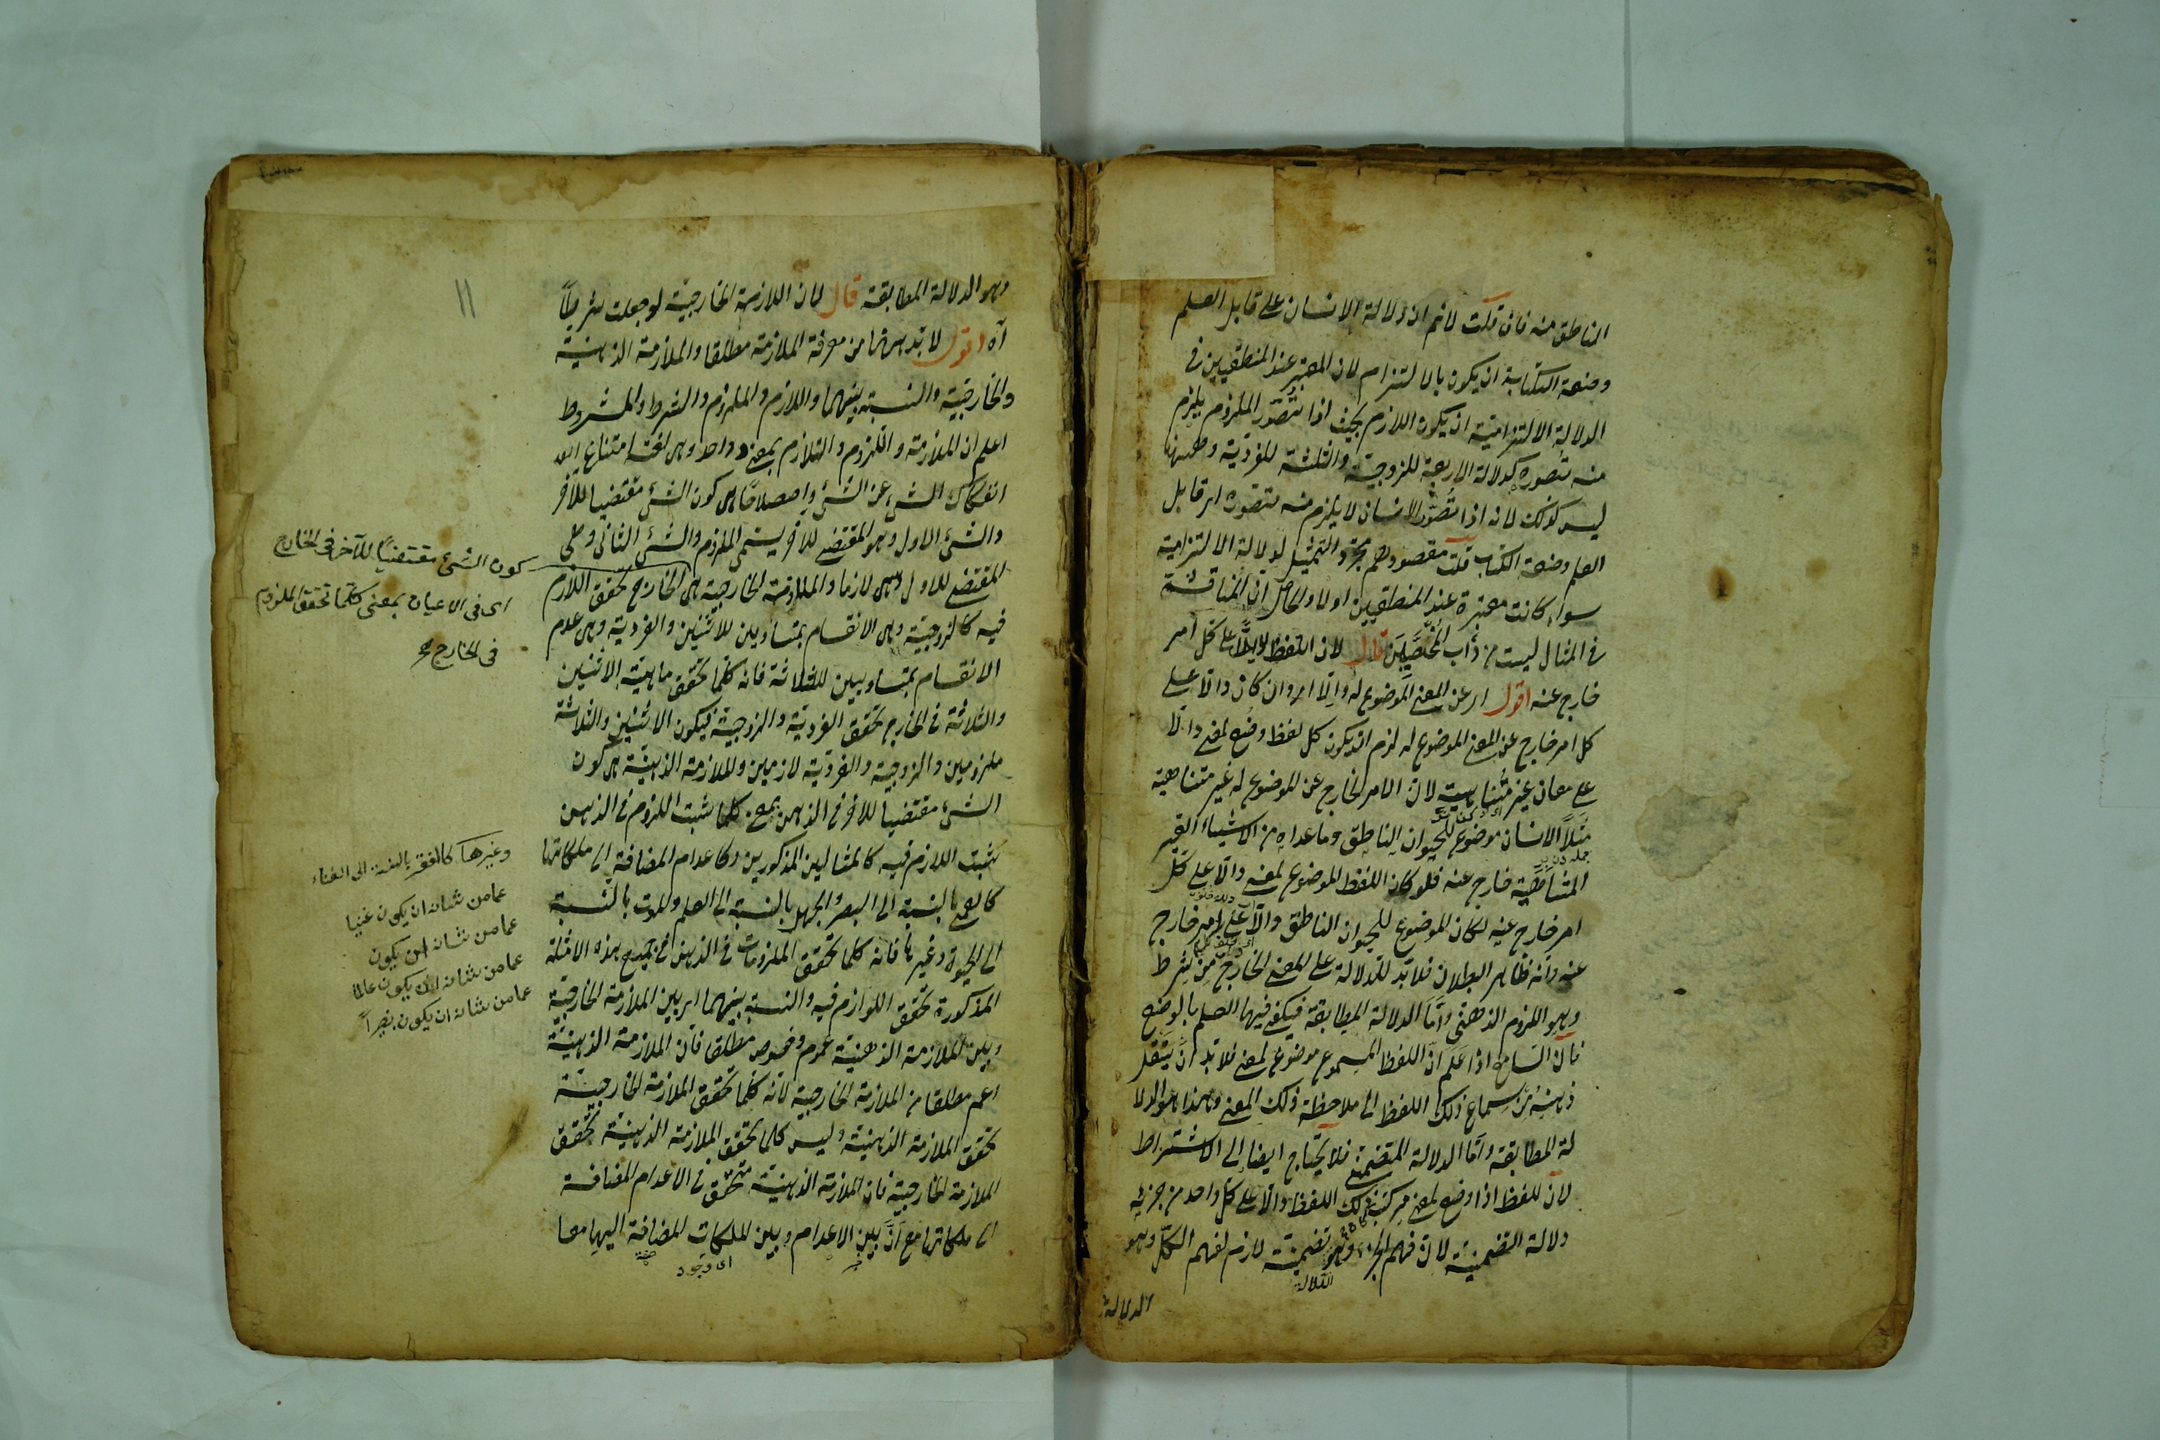 الناطق منه فان قلت لانم ان دلالة الانسان على قابل العلم
وصنعة الكتابة ان يكون بالالتزام لان المعتبر عند المنطقيين في
الدلالة الالتزامية ان يكون اللازم بحيث اذا تُصُوّر الملزوم يلزم
منه تصوره كدلالة الاربعة للزوجية والثلثة للفردية وههنا
ليس كذلك لانه اذا تُصُوّر الانسان لا يلزم منه تصوره اى قابل
العلم وصنعة الكتابة قلت مقصودهم مجرّد التمثيل لدلالة الالتزامية
سواء كانت معتبرة عند المنطقيين اولا والحاصل ان المناقشة
في المثال ليست من دَأب المُحَصِّلِين قال لان اللفظ لا يدل على كل امر
خارج عنه اقول اى عن المعنى الموضوع له والا اى وان كان دالا على
كل امر خارج عن المعنى الموضوع له لزم ان يكون كل لفظ وضع لمعنى دالا
على معان غير متناهية لان الامر الخارج عن الموضوع له غير متناهية
مثلًا الانسان موضوع للحيوان الناطق وما عداه من الاشياء الغير
المتناهية خارج عنه فلو كان اللفظ الموضوع لمعنى دالا على كل
امر خارج عنه لكان الموضوع للحيوان الناطق دالا على امور خارج
عنه وانه ظاهر البطلان فلا بد للدلالة على المعنى الخارج من شرط
وهو اللزوم الذهنى وامّا الدلالة المطابقة فيكفى فيها العلم بالوضع
فان السامع اذا علم انّ اللفظ المسموع موضوع لمعنى فلا بد ان ينتقل
ذهنه من سماع ذلك اللفظ الى ملاحظة ذلك المعنى وهذا هو الدلا
لة المطابقة وامّا الدلالة التضمنية فلا يحتاج ايضا الى الاشتراط
لان اللفظ اذا وضع لمعنى مركب فذلك اللفظ دالا على كل واحد من جزئيه
دلالة التضمنية لان فهم الجزء وهو تضمنية لازم لفهم الكل وهو
الدلالة
الدلالة
وهو الدلالة المطابقة قال لان الملازمة الخارجية لو جعلت شرطاً
آه اقول لا بد ههنا من معرفة الملازمة مطلقا والملازمة الذهنية
والخارجية والنسبة بينهما واللازم والملزوم والشرط والمشروط
اعلم ان الملازمة واللزوم والتلازم بمعنى واحد وهى لغة امتناع
انفكاك الشىء عن الشىء واصطلاحًا هى كون الشىء مقتضيا للآخر
والشىء الاول وهو المقتضى للآخر يسمى الملزوم والشىء الثانى وهى
المقتضى للاول يسمى لازما والملازمة الخارجية هى الخارج تحقق اللازم
فيه كالزوجية وهى الانقسام بمتساويين للاثنين والفردية وهى عدم
الانقسام بمتساويين للثلاثة فانه كلّما تحقق ماهية الاثنين
والثلاثة في الخارج تحقق الفردية والزوجية فيكون الاثنين والثلاثة
ملزومين والزوجية والفردية لازمين والملازمة الذهنية هى كون
الشىء مقتضيا للآخر في الذهن بمعنى كلما ثبت الملزوم في الذهن
يثبت اللازم فيه كالمثالين المذكورين وكاعدام المضافة الى ملكاتها
كالعمى بالنسبة الى البصر والجهل بالنسبة الى العلم والموت بالنسبة
الى الحيوة وغيرها فانه كلما تحقق الملزومات في الذهن في جميع هذه الامثلة
المذكورة تحقق اللوازم فيه والنسبة بينهما اى بين الملازمة الخارجية
وبين الملازمة الذهنية عموم وخصوص مطلقا فان الملازمة الذهنية
اعم مطلقا من الملازمة الخارجية لانّه كلّما تحقق الملازمة الخارجية
تحقق الملازمة الذهنية وليس كلما تحقق الملازمة الذهنية تحقق
الملازمة الخارجية فان الملازمة الذهنية متحقق في الاعدام المضافة
الى ملكاتها مع انّ بين الاعدام وبين الملكات المضافة اليها معا
اى وجود
١١
كون الشىء مقتضيًا للآخر فى الخارج
اى فى الاعيان بمعنى كلّما تحقق الملزوم
فى الخارج
وغيرها كالفقر بالنسبة الى الغناء
عما من شانه ان يكون غنيا
عما من شانه ان يكون
عما من شانه ان يكون عالما
عما من شانه ان يكون بصيراً